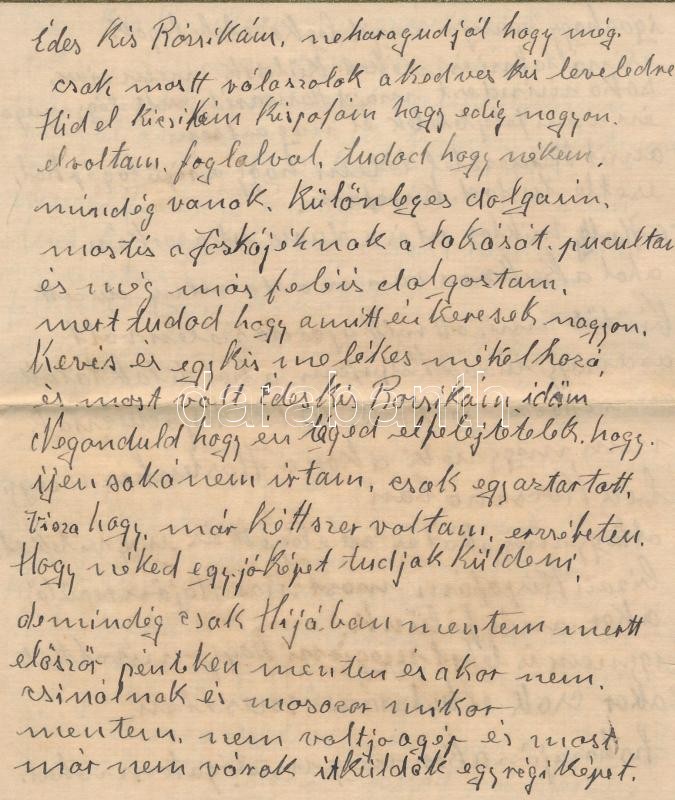 Édes Kis Rózsikám, neharagudjál hogy még.
csak mostt válaszolok akedves kis leveledre
Hid el kicsikém kispofám hogy edig nagyon.
elvoltam, foglalval, tudod hogy nékem,
mindég vanok. különleges dolgaim,
mostis a Jóskájéknak a lakását. pucultam
és még más feléis dolgostam,
mert tudod hogy amitt én keresek nagyon,
Kevés és egy kis melékes mékélhozá
és most vált Édes Kis Rozsikám időm
Negonduld hogy én téged elfelejtetelek. hogy.
ijen soká nem irtam, csak egy aztartott,
visza hogy, már kéttszer voltam, erzsébeten.
Hogy néked egy jó képet tudjak küldeni,
demindég csak Hijában mentem mertt
elöször pénteken menten és akor nem.
csinálnak és masoczor mikor
mentem, nem voltjo agép és most,
már nem várok itküldök egy régi képet.
darabanth